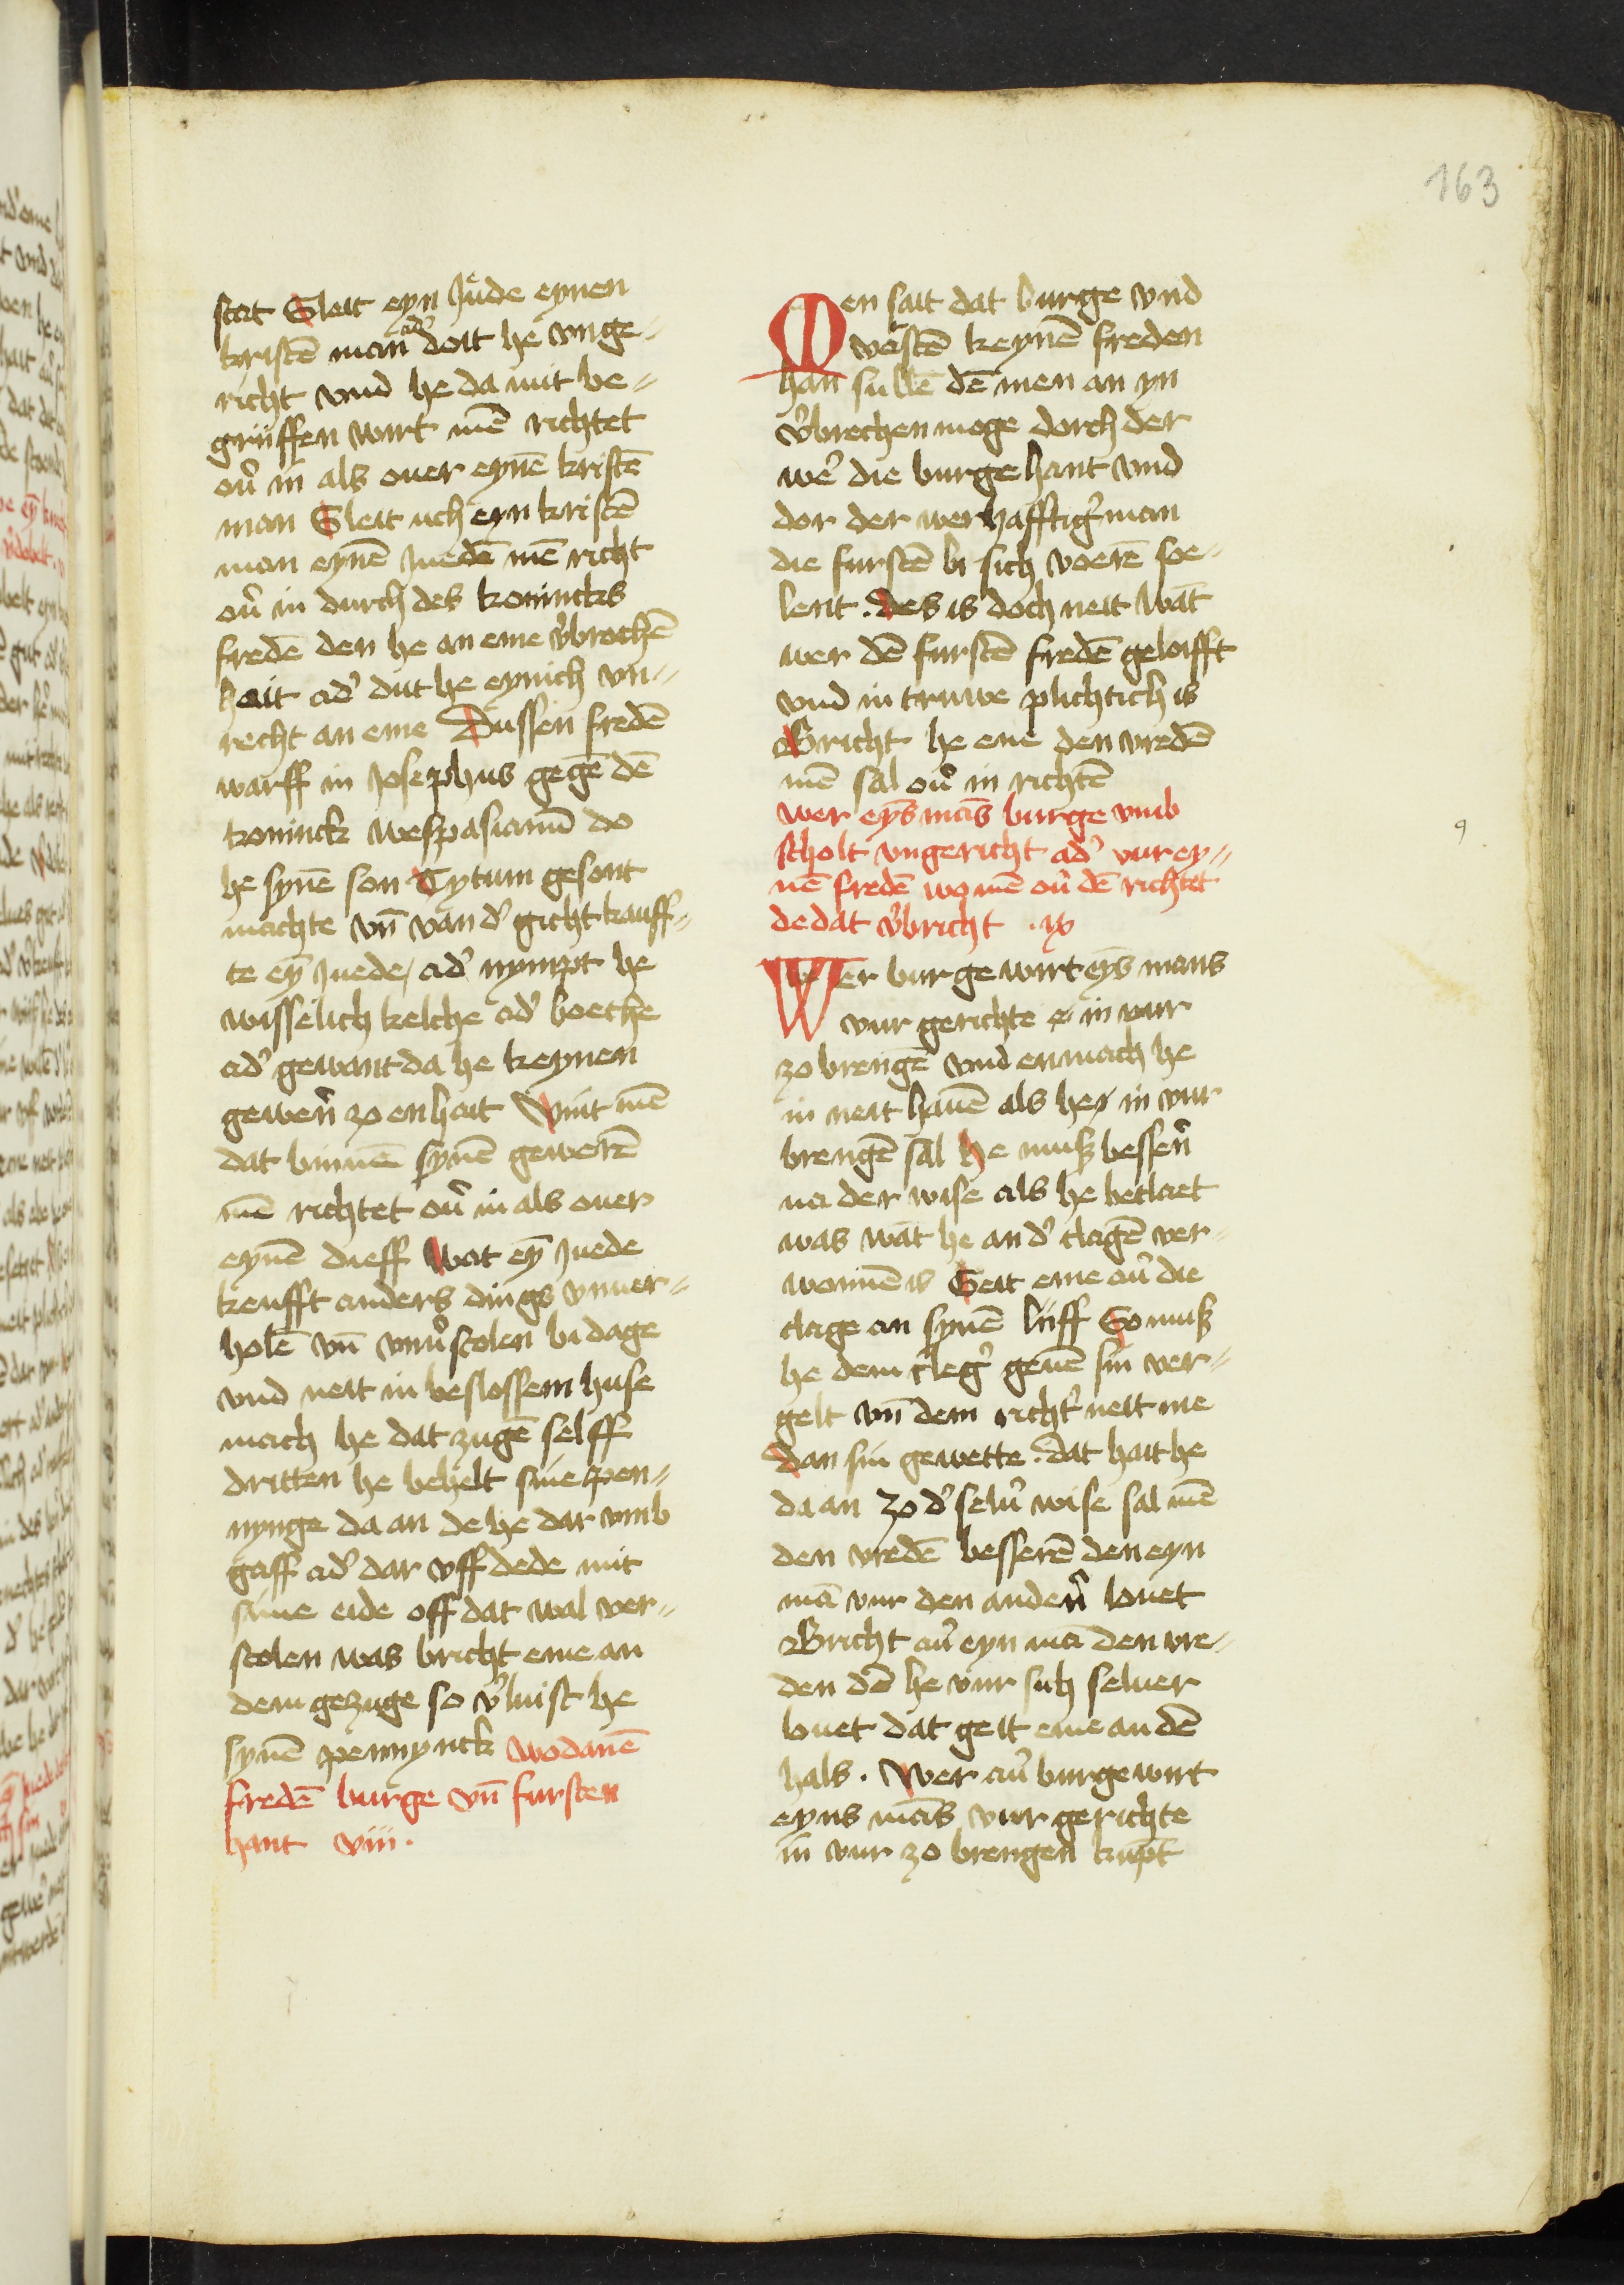 163
stat Sleit eyn Jude eynen
kristē man ad' doit he vnge-
richt vnd he da mit be-
griiffen wirt mē richtet
ou' in als ouer eynē kristē
man Sleit uch eyn kristē
man eynē Juedē mē richt
ou' in durch des konincks
fredē den he an eme v'brochē
hait ad' dut he eynich vn-
recht an eme Dussen fredē
warff in Josephus gegē dē
koninck wespasianū do
he synē son Tytum gesont
machte vn̄ van d' gicht kauff-
te eȳ Juede, ad' nympt he
wisselich kelche ad' boeche
ad' gewant da he keynen
gewer̄ zo en hait Vint mē
dat binnē synē gewerē
mē richtet ou' in als ouer
eynē dieff Wat eȳ Juede
keufft anders dings vnuer-
holē vn̄ vnu'stolen bi dage
vnd neit in beslossem huse
mach he dat zugē selff
dritten he behelt sine pen-
nynge da an de he dar vmb
gaff ad' dar vff dede mit
sime eide off dat wal ver-
stolen was bricht eme an
dem gezuge so v'luist he
synē pennynck Wo danē
fredē burge vn̄ fursten
hant viii.
Men sait dat burge vnd
vorstē keynē freden
han sullē dē men an yn
v'brechen moge dorch der
wer' die burge hant vnd
dor der werhafftig' man
die furstē bi sich voerē soe-
lent. des is doch neit wāt
wer dē furstē fredē geloifft
vnd in truwe plichtich is
Bricht he eme den vredē
mē sal ou' in richtē
wer eyns mās burge vmb
scholt vngericht ad' vur ey-
nē fredē wo mē ou' dē richtet
de dat v'bricht . ix
Wer burge wirt eyns mans
vur gerichte in vur
zo brengē vnd en mach he
in neit hauē als he in vur
brengē sal He musz besser̄
na der wise als he beclaet
was wāt he an d' clagē ver-
wonnē is Geit eme ou' die
clage an synē liiff So musz
he dem cleg' geuē sin ver-
gelt vn̄ dem richt' neit me
dan sin gewette. Dat hait he
da an Zo d' selu' wise sal mē
den vredē besserē den eyn
mā vur den ander̄ louet
Bricht au' eyn mā den vre-
den dē he vur sich seluer
louet dat geit eme an dē
hals. Wer au' burge wirt
eyns mās vur gerichte
in vur zo brengen kūpt
9